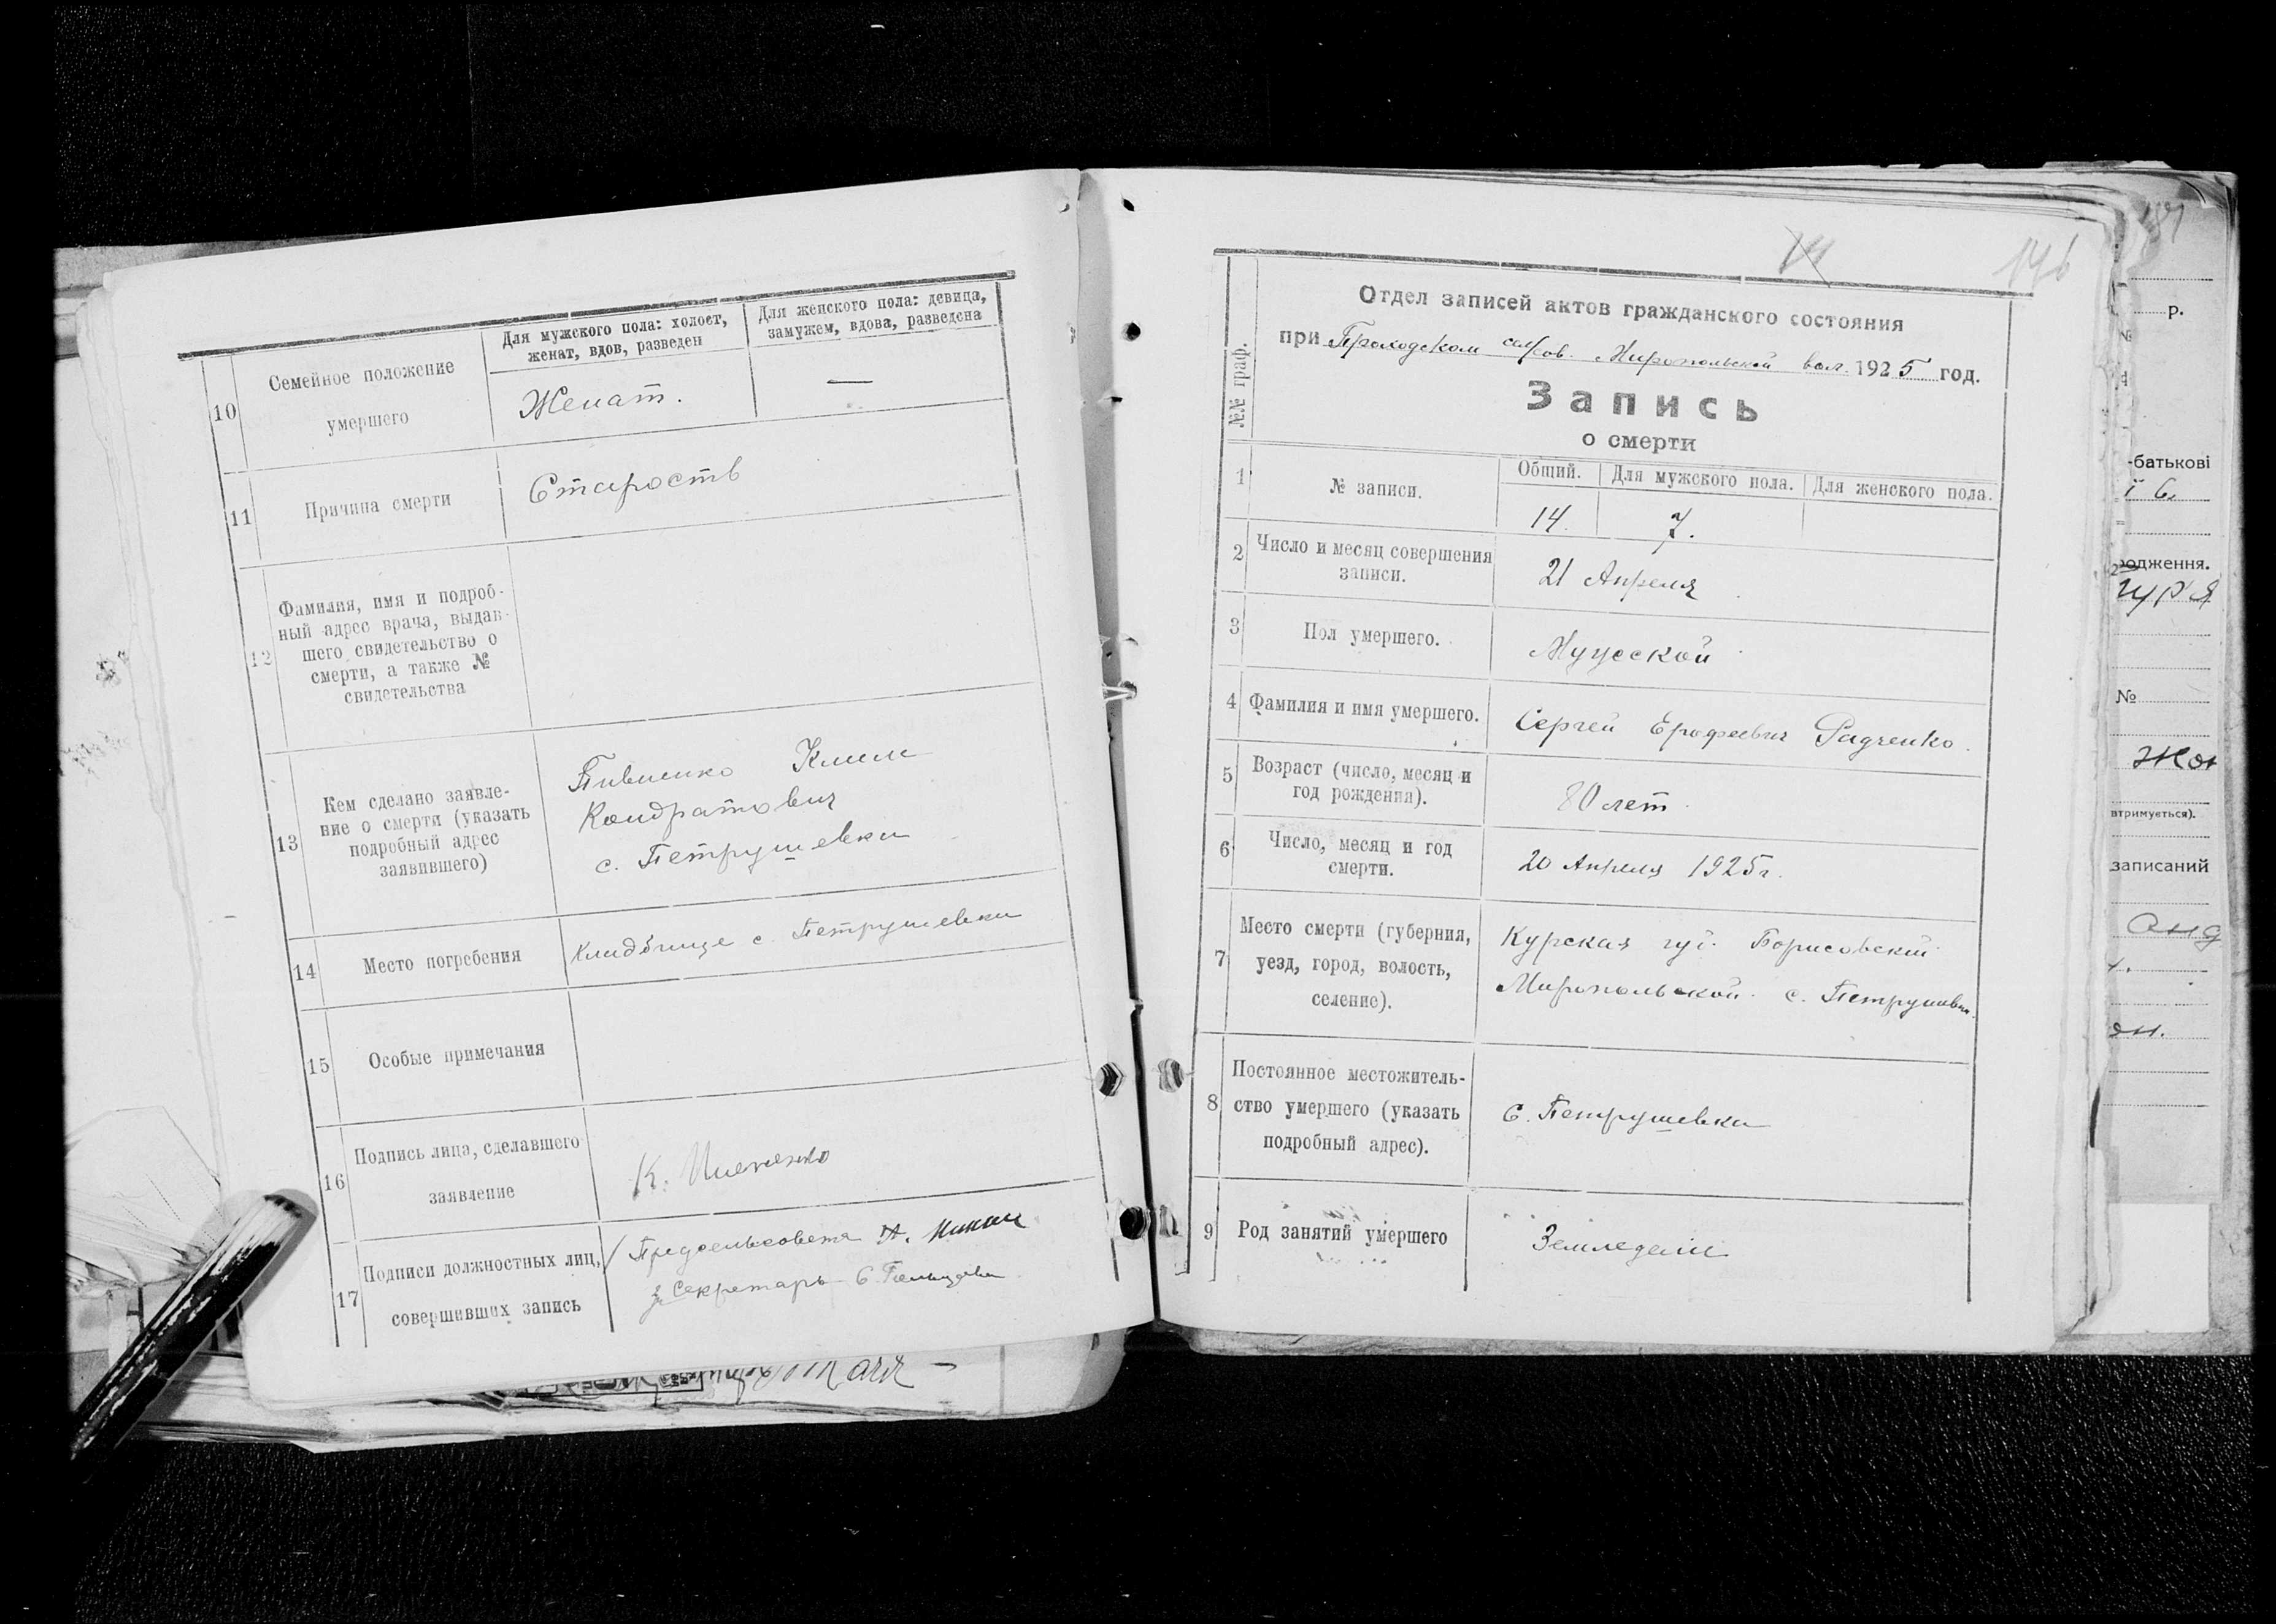 10
Семейное положение
умершего
Для мужского пола: холост,
женат, вдов, разведен
Для женского пола: девица,
замужем, вдова, разведена
Женат.
—
11
Причина смерти
Старость
12
Фамилия, имя и подроб-
ный адрес врача, выдав-
шего свидетельство о
смерти, а также №
свидетельства
13
Кем сделано заявле-
ние о смерти (указать
подробный адрес
заявившего)
Пивненко Клим
Кондратович
с. Петрушевки
14
Место погребения
Кладбище с. Петрушевки
15
Особые примечания
16
Подпись лица, сделавшего
заявление
К.
17
Подписи должностных лиц,
совершивших запись
Предсельсовета
Секретарь
146
№№ граф.
Отдел записей актов гражданского состояния
при Проходском сельсов. Миропольской вол. 1925 год.
Запись
о смерти
1
№ записи.
Общий.
Для мужского пола.
Для женского пола.
14.
7.
2
Число и месяц совершения
записи.
21 Апреля
3
Пол умершего.
Мужской
4
Фамилия и имя умершего.
Сергей Ерофеевич Радченко.
5
Возраст (число, месяц и
год рождения).
80 лет
6
Число, месяц и год
смерти.
20 Апреля 1925 г.
7
Место смерти (губерния,
уезд, город, волость,
селение).
Курская губ. Борисовский
Миропольской с. Петрушевки
8
Постоянное местожитель-
ство умершего (указать
подробный адрес).
с. Петрушевка
9
Род занятий умершего
р.
№
-батькові
одження.
№
втримується).
записаний